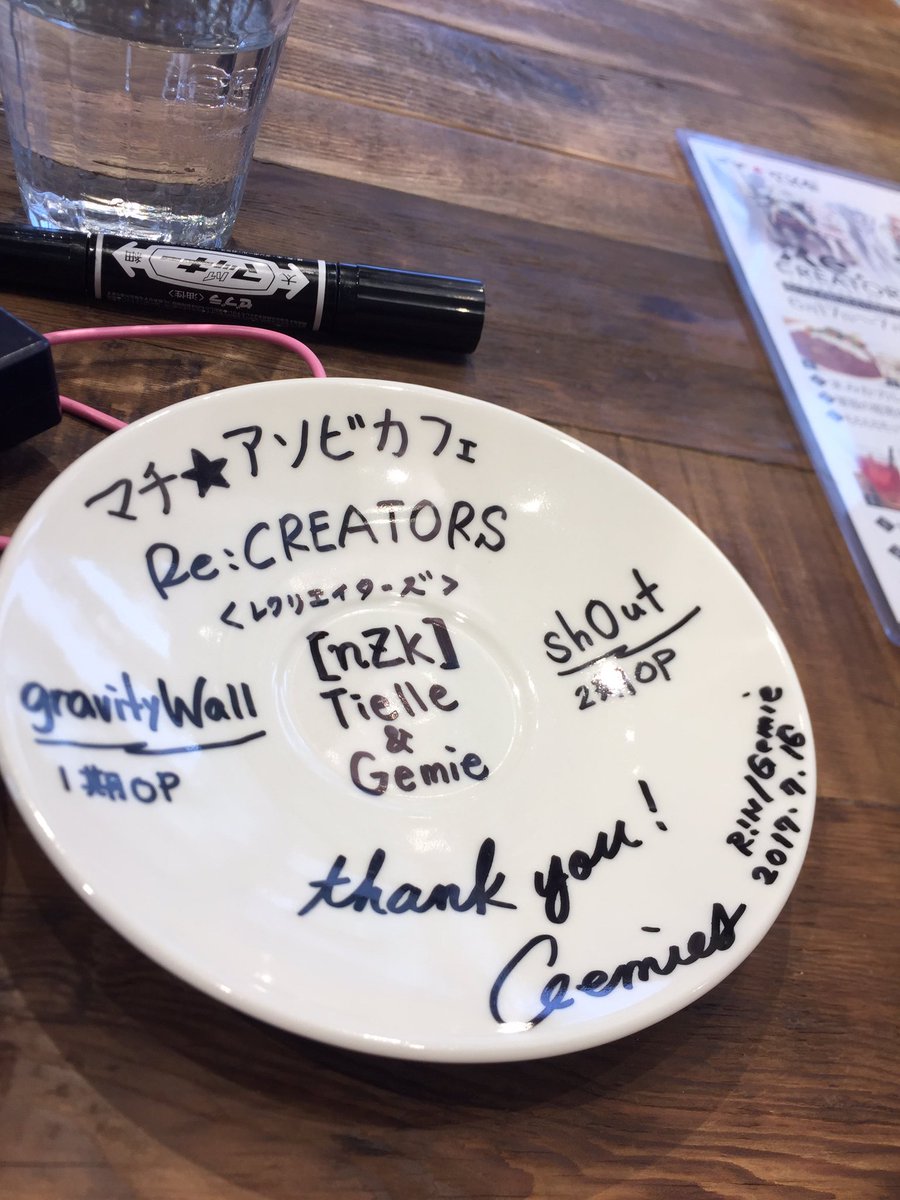 マチ★アソビカフェ
Re:CREATORS
<レクリエイターズ>
[nZk]
Tielle
&
Gemie
gravityWall
1期OP
shOut
2期OP
thank you!
Gemies
RIN/Gemie
2017.9.16
太 ハイマッキー 細
ゼブラ<油性>
CREATORS